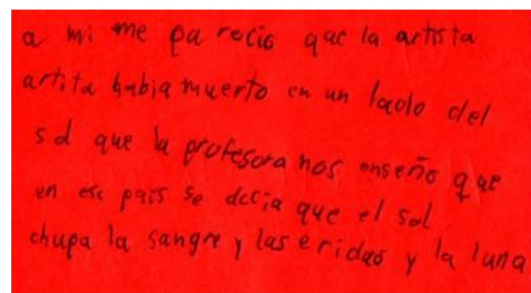 a mi me parecio que la artista
artita habia muerto en un lado del
sol que la profesora nos enseño que
en ese pais se decia que el sol
chupa la sangre y las eridas y la luna